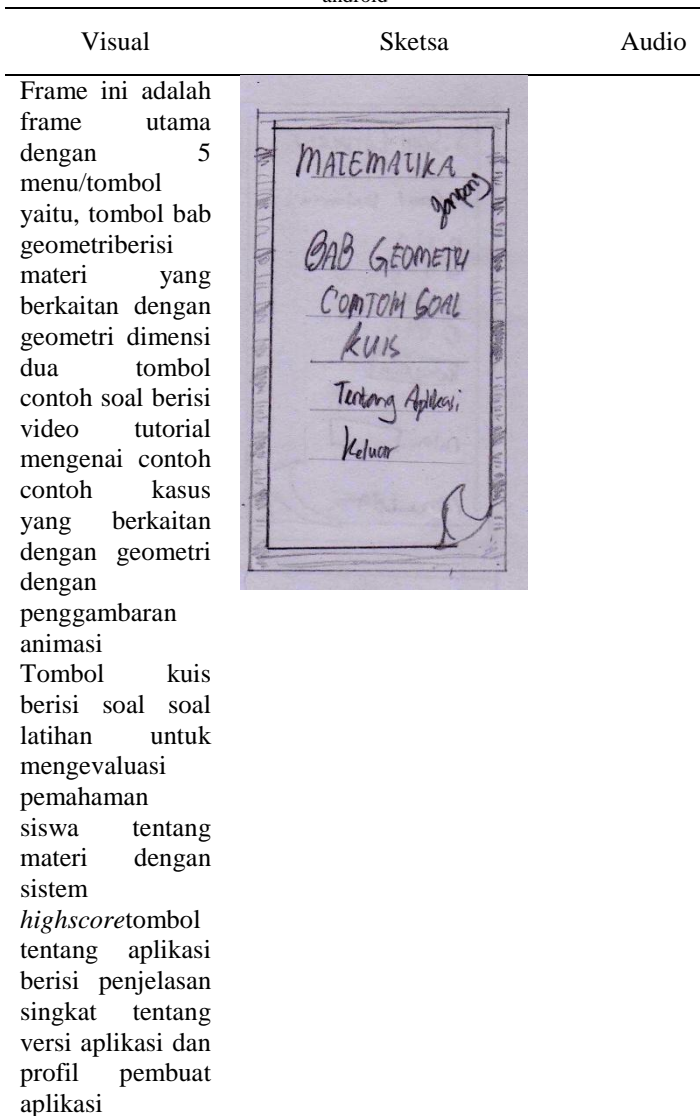 android
Visual Sketsa Audio
Frame ini adalah
frame utama
dengan 5
menu/tombol
yaitu, tombol bab
geometriberisi
materi yang
berkaitan dengan
geometri dimensi
dua tombol
contoh soal berisi
video tutorial
mengenai contoh
contoh kasus
yang berkaitan
dengan geometri
dengan
penggambaran
animasi
Tombol kuis
berisi soal soal
latihan untuk
mengevaluasi
pemahaman
siswa tentang
materi dengan
sistem
highscoretombol
tentang aplikasi
berisi penjelasan
singkat tentang
versi aplikasi dan
profil pembuat
aplikasi
MATEMATIKA
BAB GEOMETRI
CONTOH SOAL
KUIS
Tentang Aplikasi
Keluar